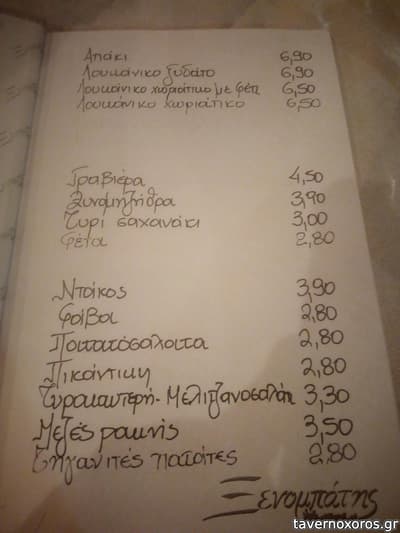 Απάκι 6,90
Λουκάνικο ξυδάτο 6,90
Λουκάνικο χωριάτικο με φέτα 6,50
Λουκάνικο χωριάτικο 6,50
Γραβιέρα 4,50
Ξυνομηζήθρα 3,90
Τυρί σαχανάκι 3,00
Φέτα 2,80
Ντάκος 3,90
Φάβα 2,80
Πατατοσάλατα 2,80
Πικάντικη 2,80
Τυροκαυτερή - Μελιτζανοσαλάτα 3,30
Μεζές ρακής 3,50
Τηγανιτές πατάτες 2,80
Ξενομπάτης
tavernoxoros.gr